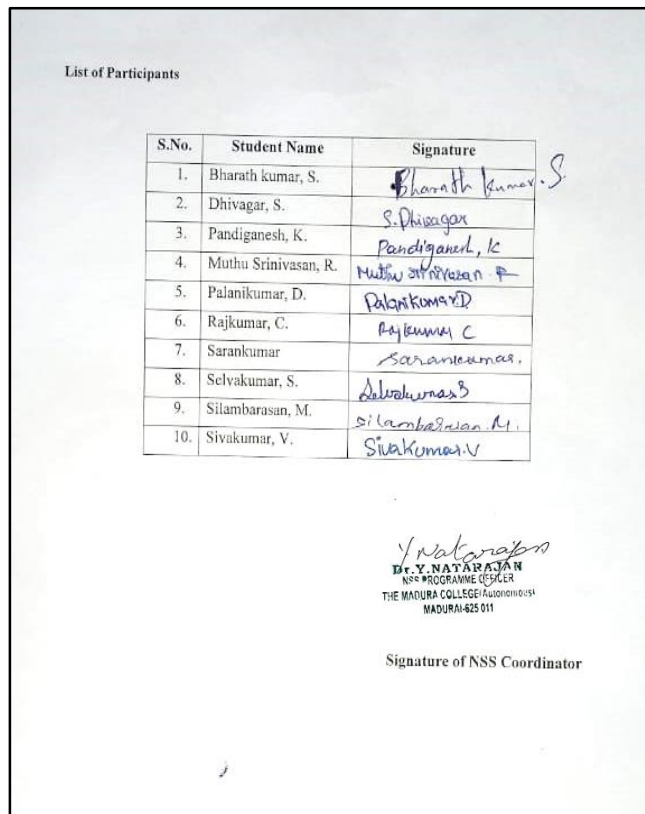 List of Participants
S.No. Student Name Signature
1. Bharath kumar, S. Bharath Kumar.S.
2. Dhivagar, S. S.Dhivagar
3. Pandiganesh, K. Pandiganesh, K
4. Muthu Srinivasan, R. Muthu Srinivasan. R
5. Palanikumar, D. PalaniKumar.D
6. Rajkumar, C. Rajkumar C
7. Sarankumar Sarankumar.
8. Selvakumar, S. Selvakumar.S
9. Silambarasan, M. Silambarasan.M.
10. Sivakumar, V. SivaKumar.V
Y Natarajan
Dr.Y.NATARAJAN
NSS PROGRAMME OFFICER
THE MADURA COLLEGE (Autonomous)
MADURAI-625 011
Signature of NSS Coordinator